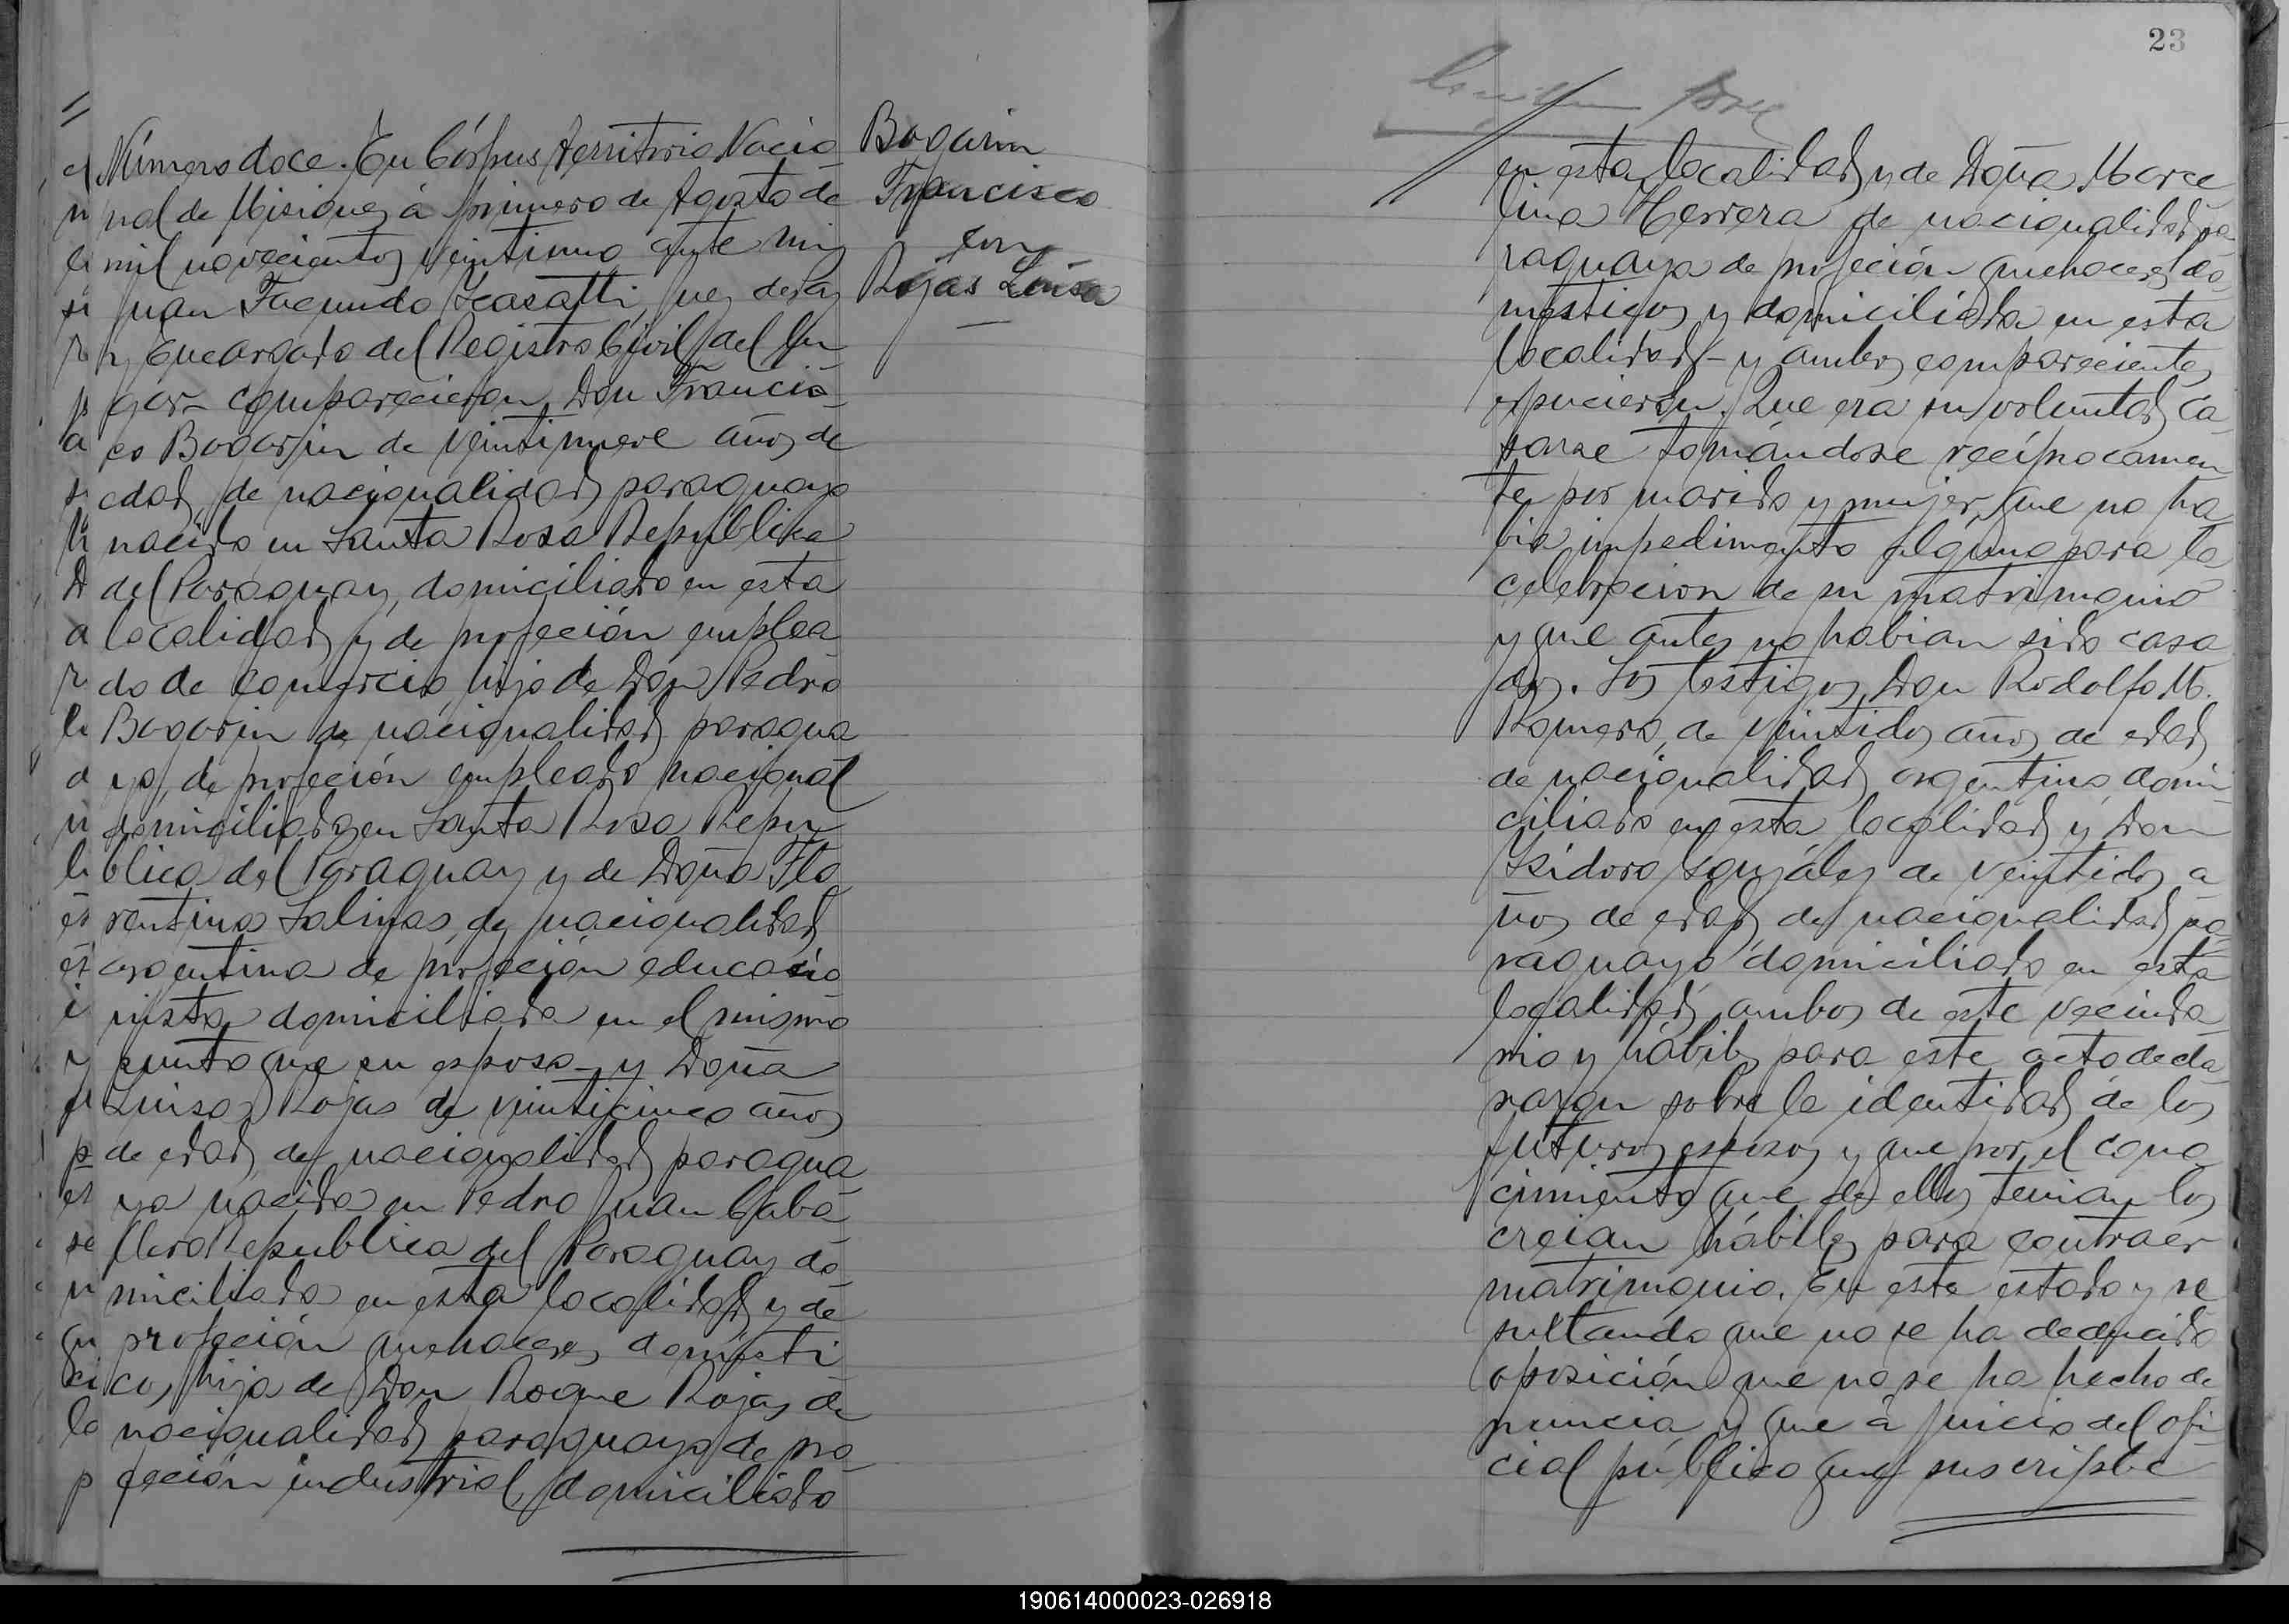 Número doce. En Córpus, Territorio Nacio
nal de Misiones, á primero de Agosto de
mil novecientos veintiuno, ante mi,
Juan Facundo Scasatti, Juez de Paz
y Encargado del Registro Civil del lu
gar comparecieron Don Francis
co Bogarin de veintinueve años de
edad, de nacionalidad paraguaya
nacido en Santa Rosa República
del Paraguay, domiciliado en esta
localidad y de profeción emplea
do de comercio, hijo de Don Pedro
Bogarin de nacionalidad paragua
ya, de profeción empleado nacional
domiciliado en Santa Rosa Repu
blica del Paraguay y de Doña Flo
rentina Salinas, de nacionalidad
argentina de profeción educacio
nista domiciliada en el mismo
punto que su esposo y Doña
Luisa Rojas de veinticinco años
de edad, de nacionalidad paragua
ya nacida en Pedro Juan Caba
llero Republica del Paraguay do
miciliada en esta localidad y de
profeción quehaceres domésti
cos, hija de Don Roque Rojas, de
nacionalidad paraguaya de pro
feción industrial, domiciliado
Bogarin
Francisco
con
Rojas Luisa
23
en esta localidad y de Doña Marce
lina Herrera de nacionalidad pa
raguaya de profeción quehaceres do
mésticos y domiciliada en esta
localidad - y ambos comparecientes
expucieron: Que era su voluntad ca
sarse tomándose recíprocamen
te por marido y mujer, que no ha
bia impedimento alguno para la
celebracion de su matrimonio
y que antes no habian sido casa
dos. Los testigos Don Rodolfo M.
Romero, de veintidos años de edad,
de nacionalidad argentina, domi
ciliado en esta localidad y Don
Isidoro González de veintidos a
ños de edad de nacionalidad pa
raguaya domiciliado en esta
localidad, ambos de este vecinda
rio y hábiles para este acto decla
raron sobre la identidad de los
futuros esposos y que por el cono
cimiento que de ellos tenian los
creian hábiles para contraer
matrimonio. En este estado y re
sultando que no se ha deducido
oposición que no se ha hecho de
nuncia y que á juicio del ofi
cial público que suscripbe
190614000023-026918